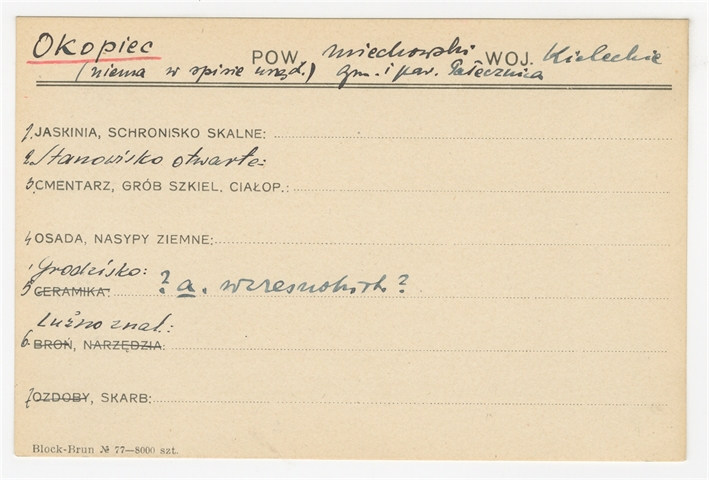 Okopiec POW. miechowski WOJ. Kieleckie
(niema w spisie urzęd.) gm. i par. Pałecznica
1. JASKINIA, SCHRONISKO SKALNE:
2. Stanowisko otwarte:
3. CMENTARZ, GRÓB SZKIEL. CIAŁOP.:
4. OSADA, NASYPY ZIEMNE:
Grodzisko:
5. CERAMIKA: ? a. wczesnohist. ?
Luźno znal.:
6. BROŃ, NARZĘDZIA:
7. OZDOBY, SKARB:
Block-Brun № 77—8000 szt.